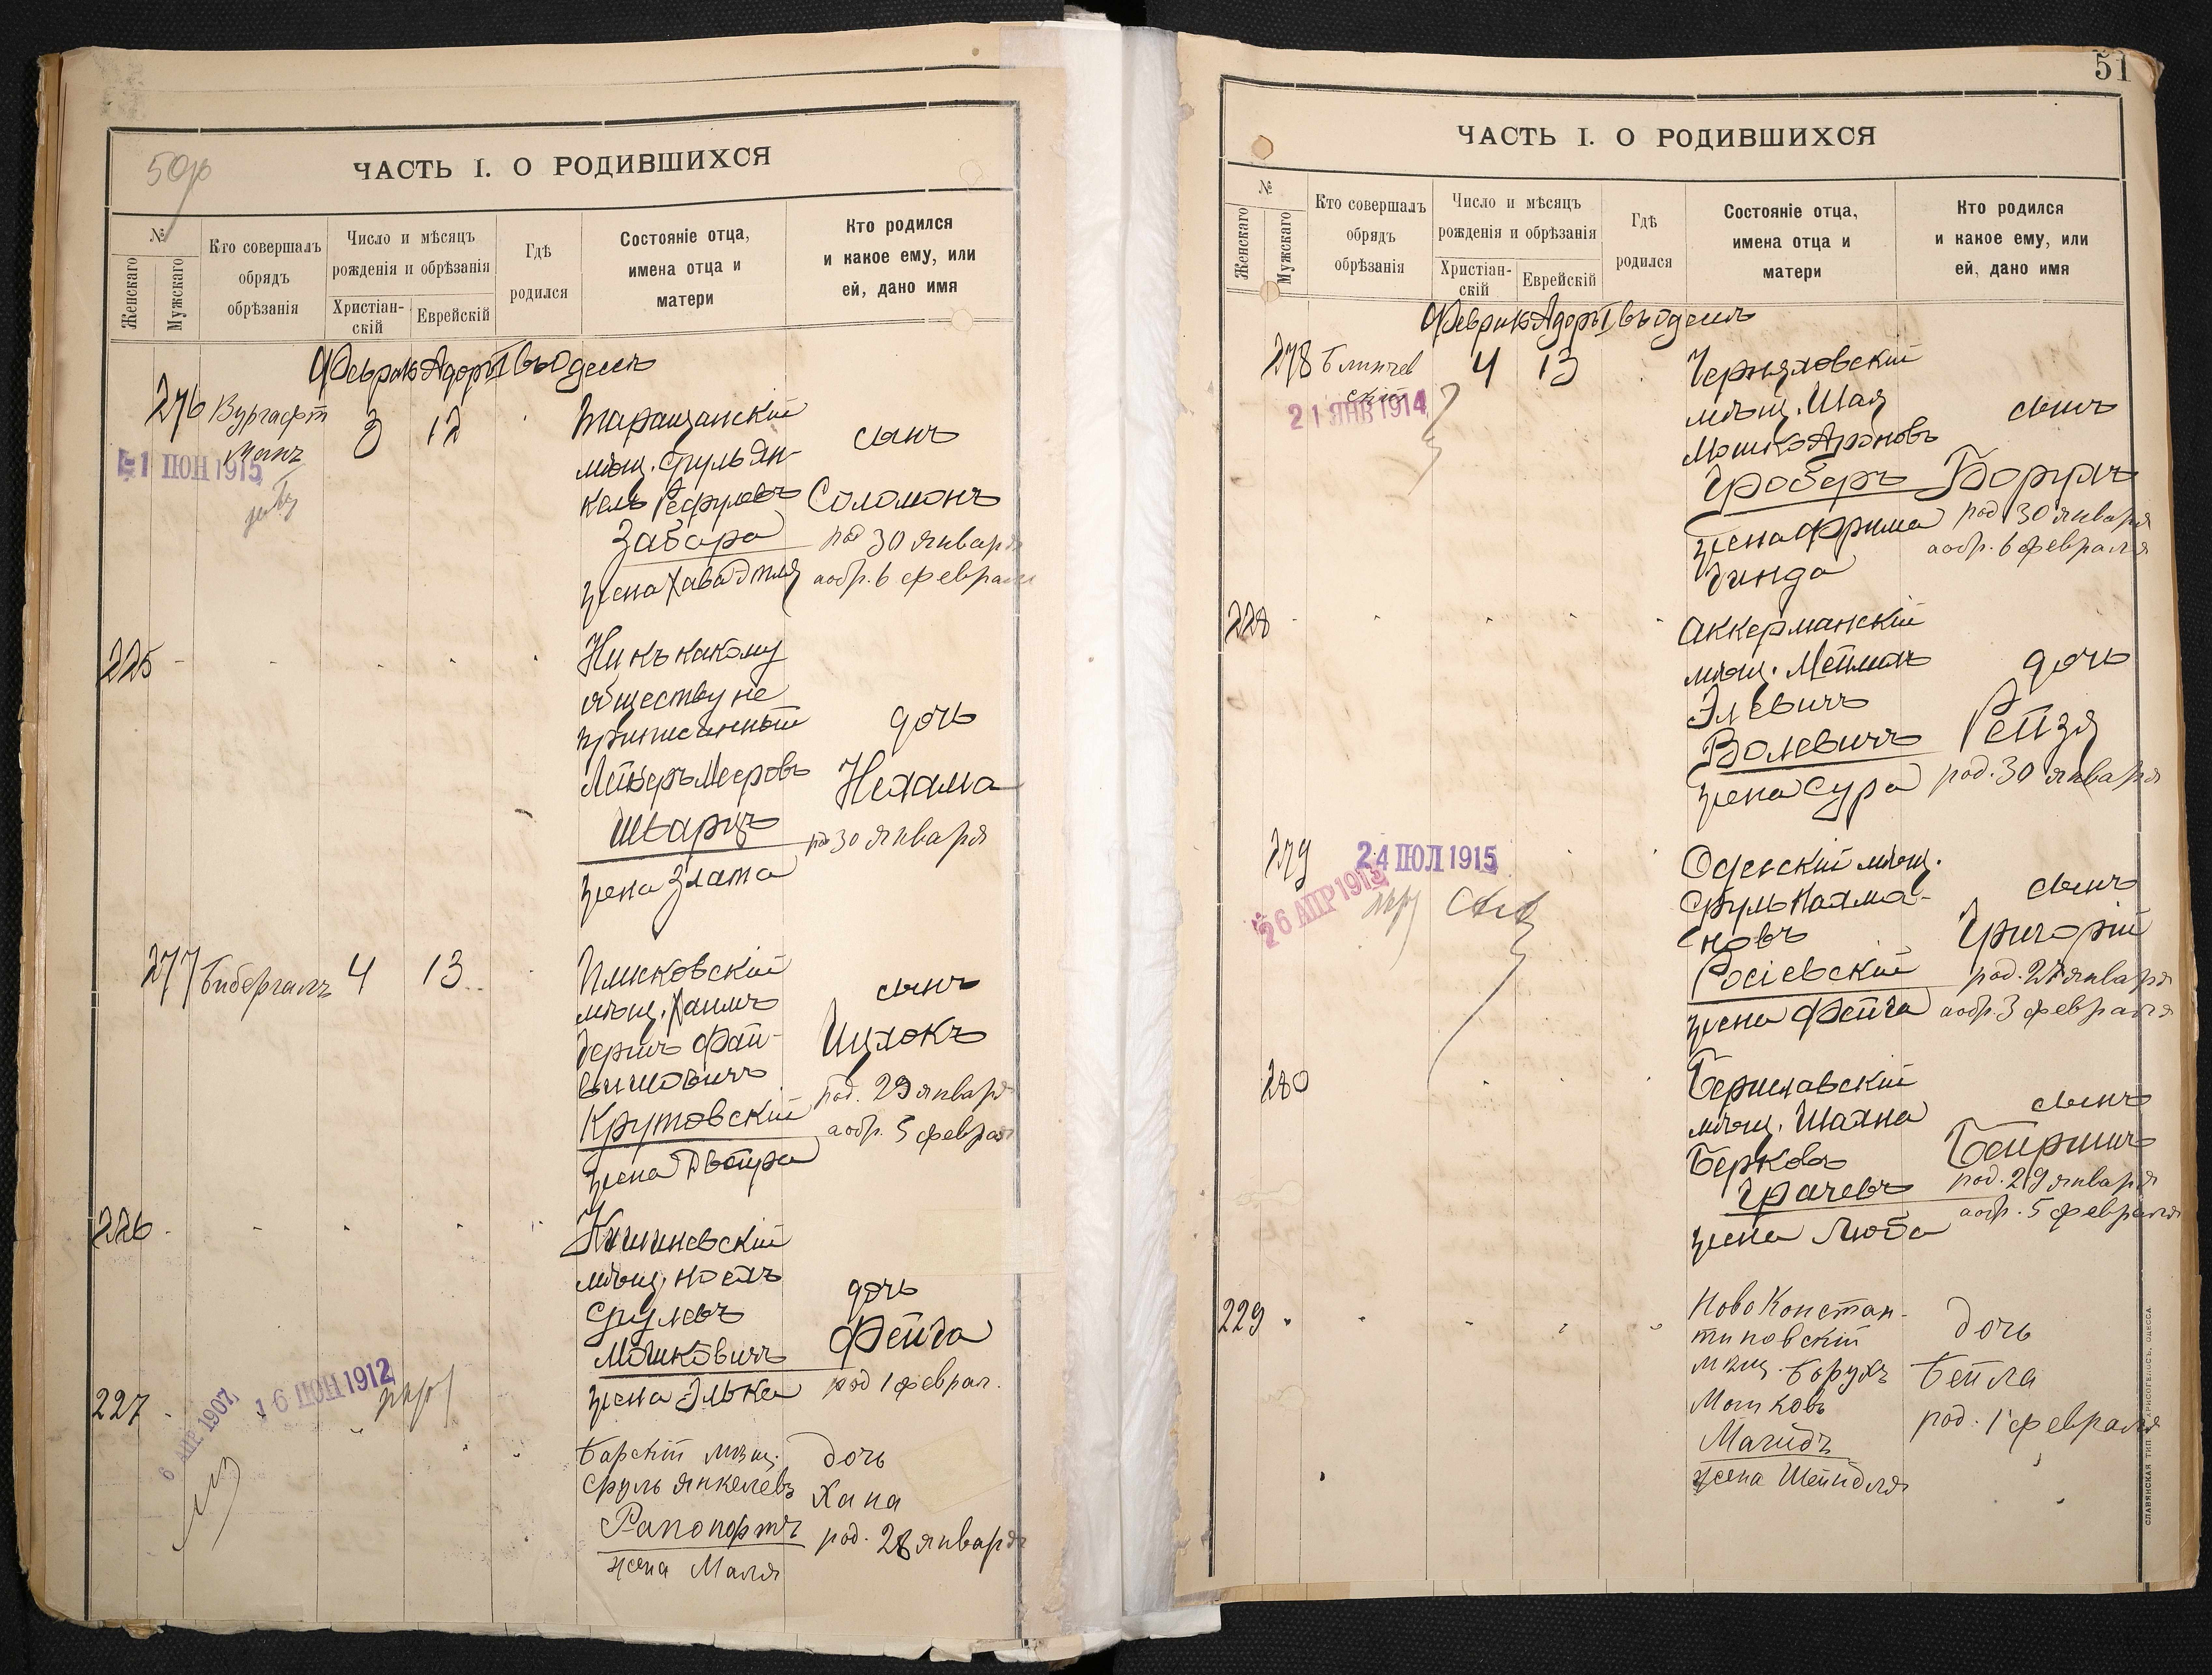 50
ЧАСТЬ I. О РОДИВШИХСЯ
№
Женскаго
Мужскаго
Кто совершалъ
обрядъ
обрѣзанія
Число и мѣсяцъ
рожденія и обрѣзанія
Христіан-
скій
Еврейскій
Гдѣ
родился
Состояніе отца,
имена отца и
матери
Кто родился
и какое ему, или
ей, дано имя
Февраль Адоръ I въ Одессѣ
276 Вургафт
манъ
1 ІЮН 1915
3 12
Таращанскій
мѣщ. Сруль Ян-
кель Рефуловъ
Забара
жена Хава Этля
сынъ
Соломонъ
род 30 января
а обр. 6 февраля
225
Ни къ какому
обществу не
приписанный
Лейзеръ Мееровъ
Шварцъ
жена Злата
дочь
Нехама
род 30 января
277 Бибергалъ 4 13
Плисковскій
мѣщ. Хаимъ
Гершъ Фай-
вишовичъ
Крутовскій
жена Двойра
сынъ
Ицхокъ
род. 29 января
а обр. 5 феврал
226
Кишиневскій
мѣщ. Ноехъ
Срулевъ
Мошковичъ
жена Элька
дочь
Фейга
род 1 феврал.
227
6 АПР 1907
16 ІЮН 1912
Барскій мѣщ.
Сруль Янкелевъ
Рапопортъ
жена Маля
дочь
Хана
род. 28 января
51
ЧАСТЬ I. О РОДИВШИХСЯ
№
Женскаго
Мужскаго
Кто совершалъ
обрядъ
обрѣзанія
Число и мѣсяцъ
рожденія и обрѣзанія
Христіан-
скій
Еврейскій
Гдѣ
родился
Состояніе отца,
имена отца и
матери
Кто родился
и какое ему, или
ей, дано имя
Февраль Адоръ I въ Одессѣ
278 Блинчев
скій
21 ЯНВ 1914
4 13
Черняховскій
мѣщ. Шая
Мошко Ароновъ
Гроберъ
жена Фрима
Гинда
сынъ
Борухъ
род 30 января
а обр. 6 февраля
228
Аккерманскій
мѣщ. Мейлахъ
Элевичъ
Волевичъ
жена Сура
дочь
Рейзя
род. 30 января
279
24 ІЮЛ 1915
26 АПР 1913
Одесскій мѣщ.
Сруль Нахма-
новъ
Росіевскій
жена Фейга
сынъ
Григорій
род. 27 января
а обр. 3 февраля
280
Бериславскій
мѣщ. Шахна
Берковъ
Грачевъ
жена Люба
сынъ
Бейришъ
род. 29 января
а обр. 5 февраля
229
Ново Констан-
тиновскій
мѣщ. Борухъ
Мошковъ
Магидъ
жена Шейндля
дочь
Бейла
род. 1 февраля
СЛАВЯНСКАЯ ТИП. ХРИСОГЕЛОСЪ, ОДЕССА